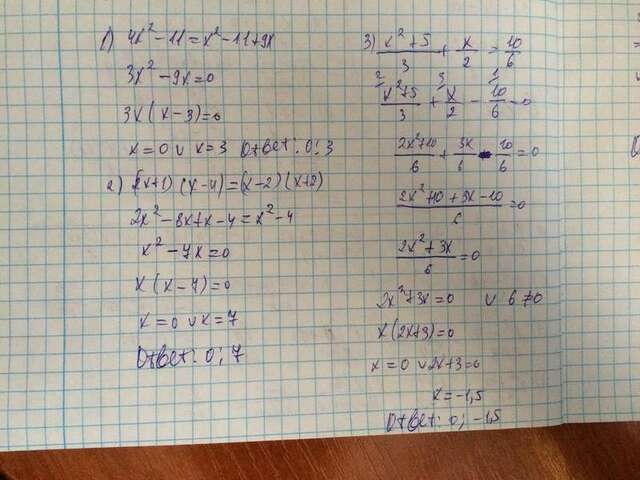 1) 4x² - 11 = x² - 11 + 9x
3x² - 9x = 0
3x(x - 3) = 0
x = 0 ∨ x = 3 Ответ: 0; 3
2) (2x+1)(x-4) = (x-2)(x+2)
2x² - 8x + x - 4 = x² - 4
x² - 7x = 0
x(x - 7) = 0
x = 0 ∨ x = 7
Ответ: 0; 7
3) (x² + 5)/3 + x/2 = 10/6
²(x² + 5)/3 + ³x/2 - ¹10/6 = 0
(2x² + 10)/6 + 3x/6 - 10/6 = 0
(2x² + 10 + 3x - 10)/6 = 0
(2x² + 3x)/6 = 0
2x² + 3x = 0 ∨ 6 ≠ 0
x(2x + 3) = 0
x = 0 ∨ 2x + 3 = 0
x = -1,5
Ответ: 0; -1,5